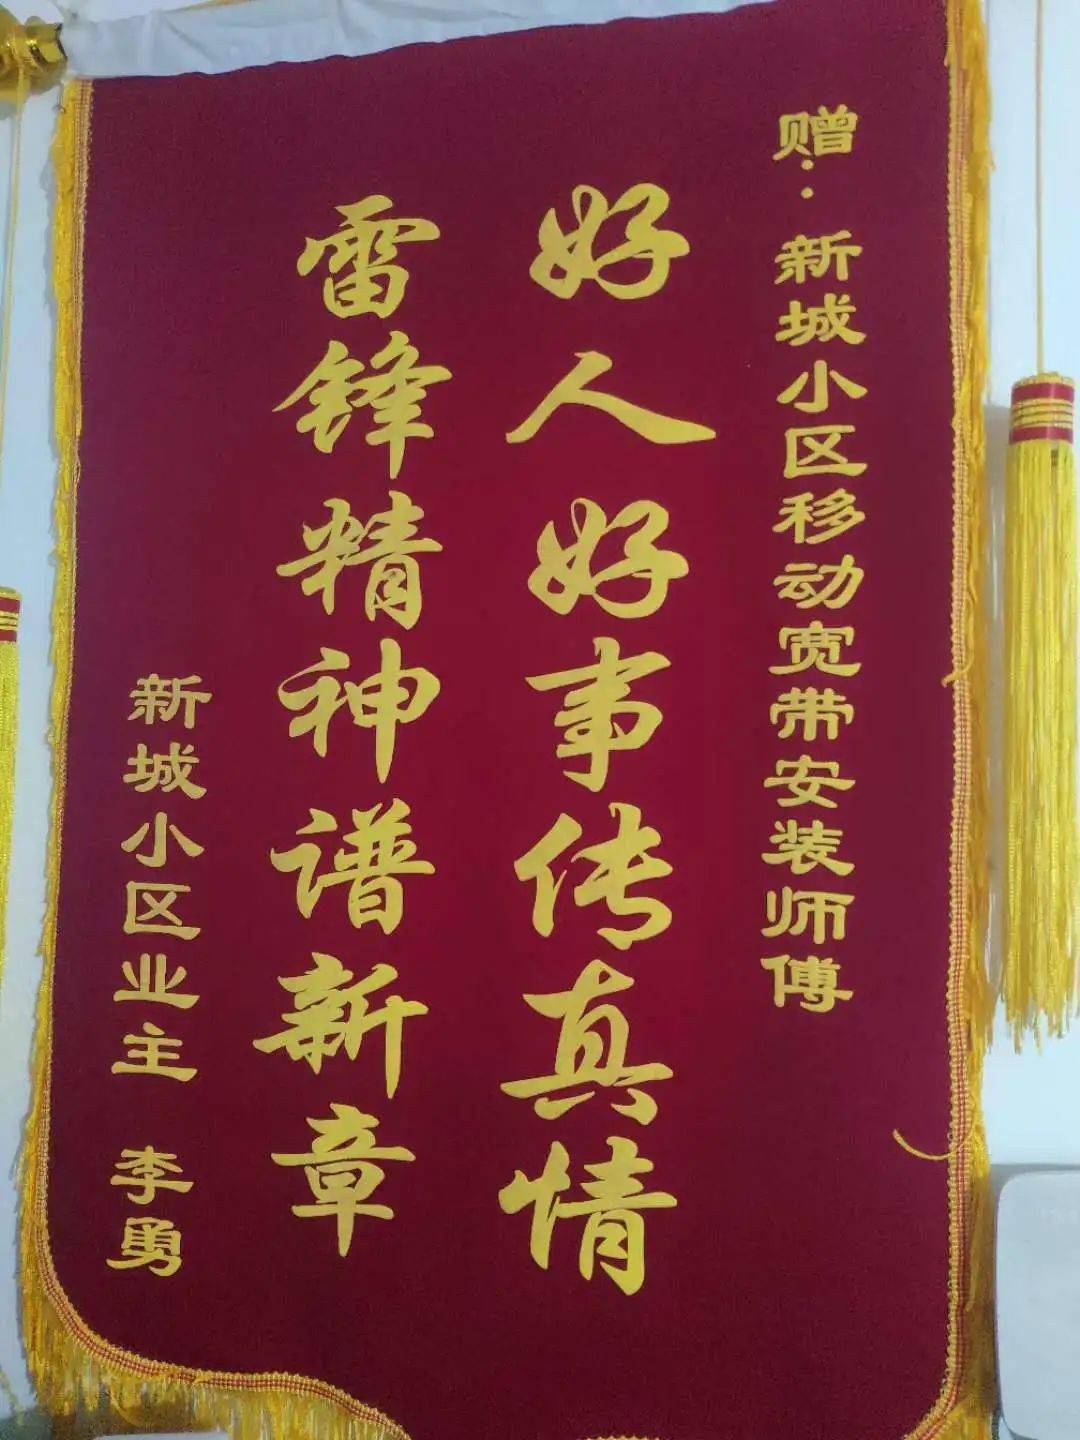 赠：新城小区移动宽带安装师傅
好人好事传真情
雷锋精神谱新章
新城小区业主 李勇